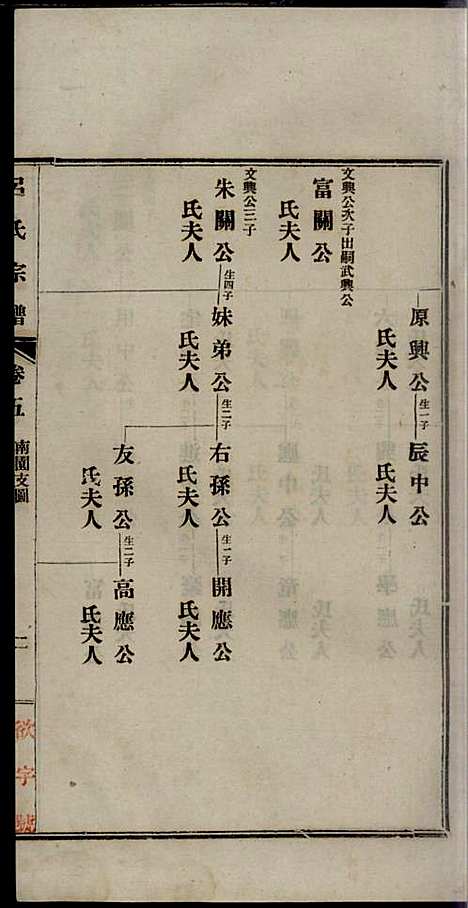 原興公生一子辰中公
氏夫人
氏夫人
文興公次子出嗣武興公
富關公
氏夫人
文興公三子
朱關公生四子妹弟公生二子右孫公生一子開應公
氏夫人
氏夫人
氏夫人
氏夫人
友孫公生二子高應公
氏夫人
氏夫人
呂氏宗譜
卷五
南園支圖
二
欲字號